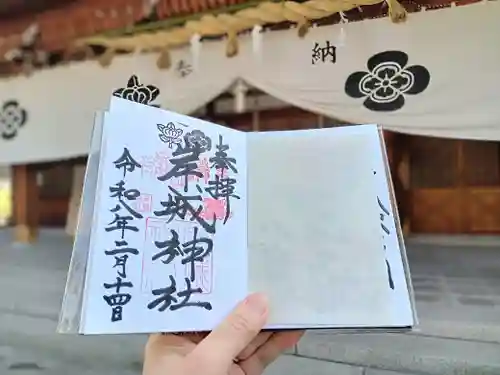 奉
納
奉拝
岸城神社
令和八年二月十四日